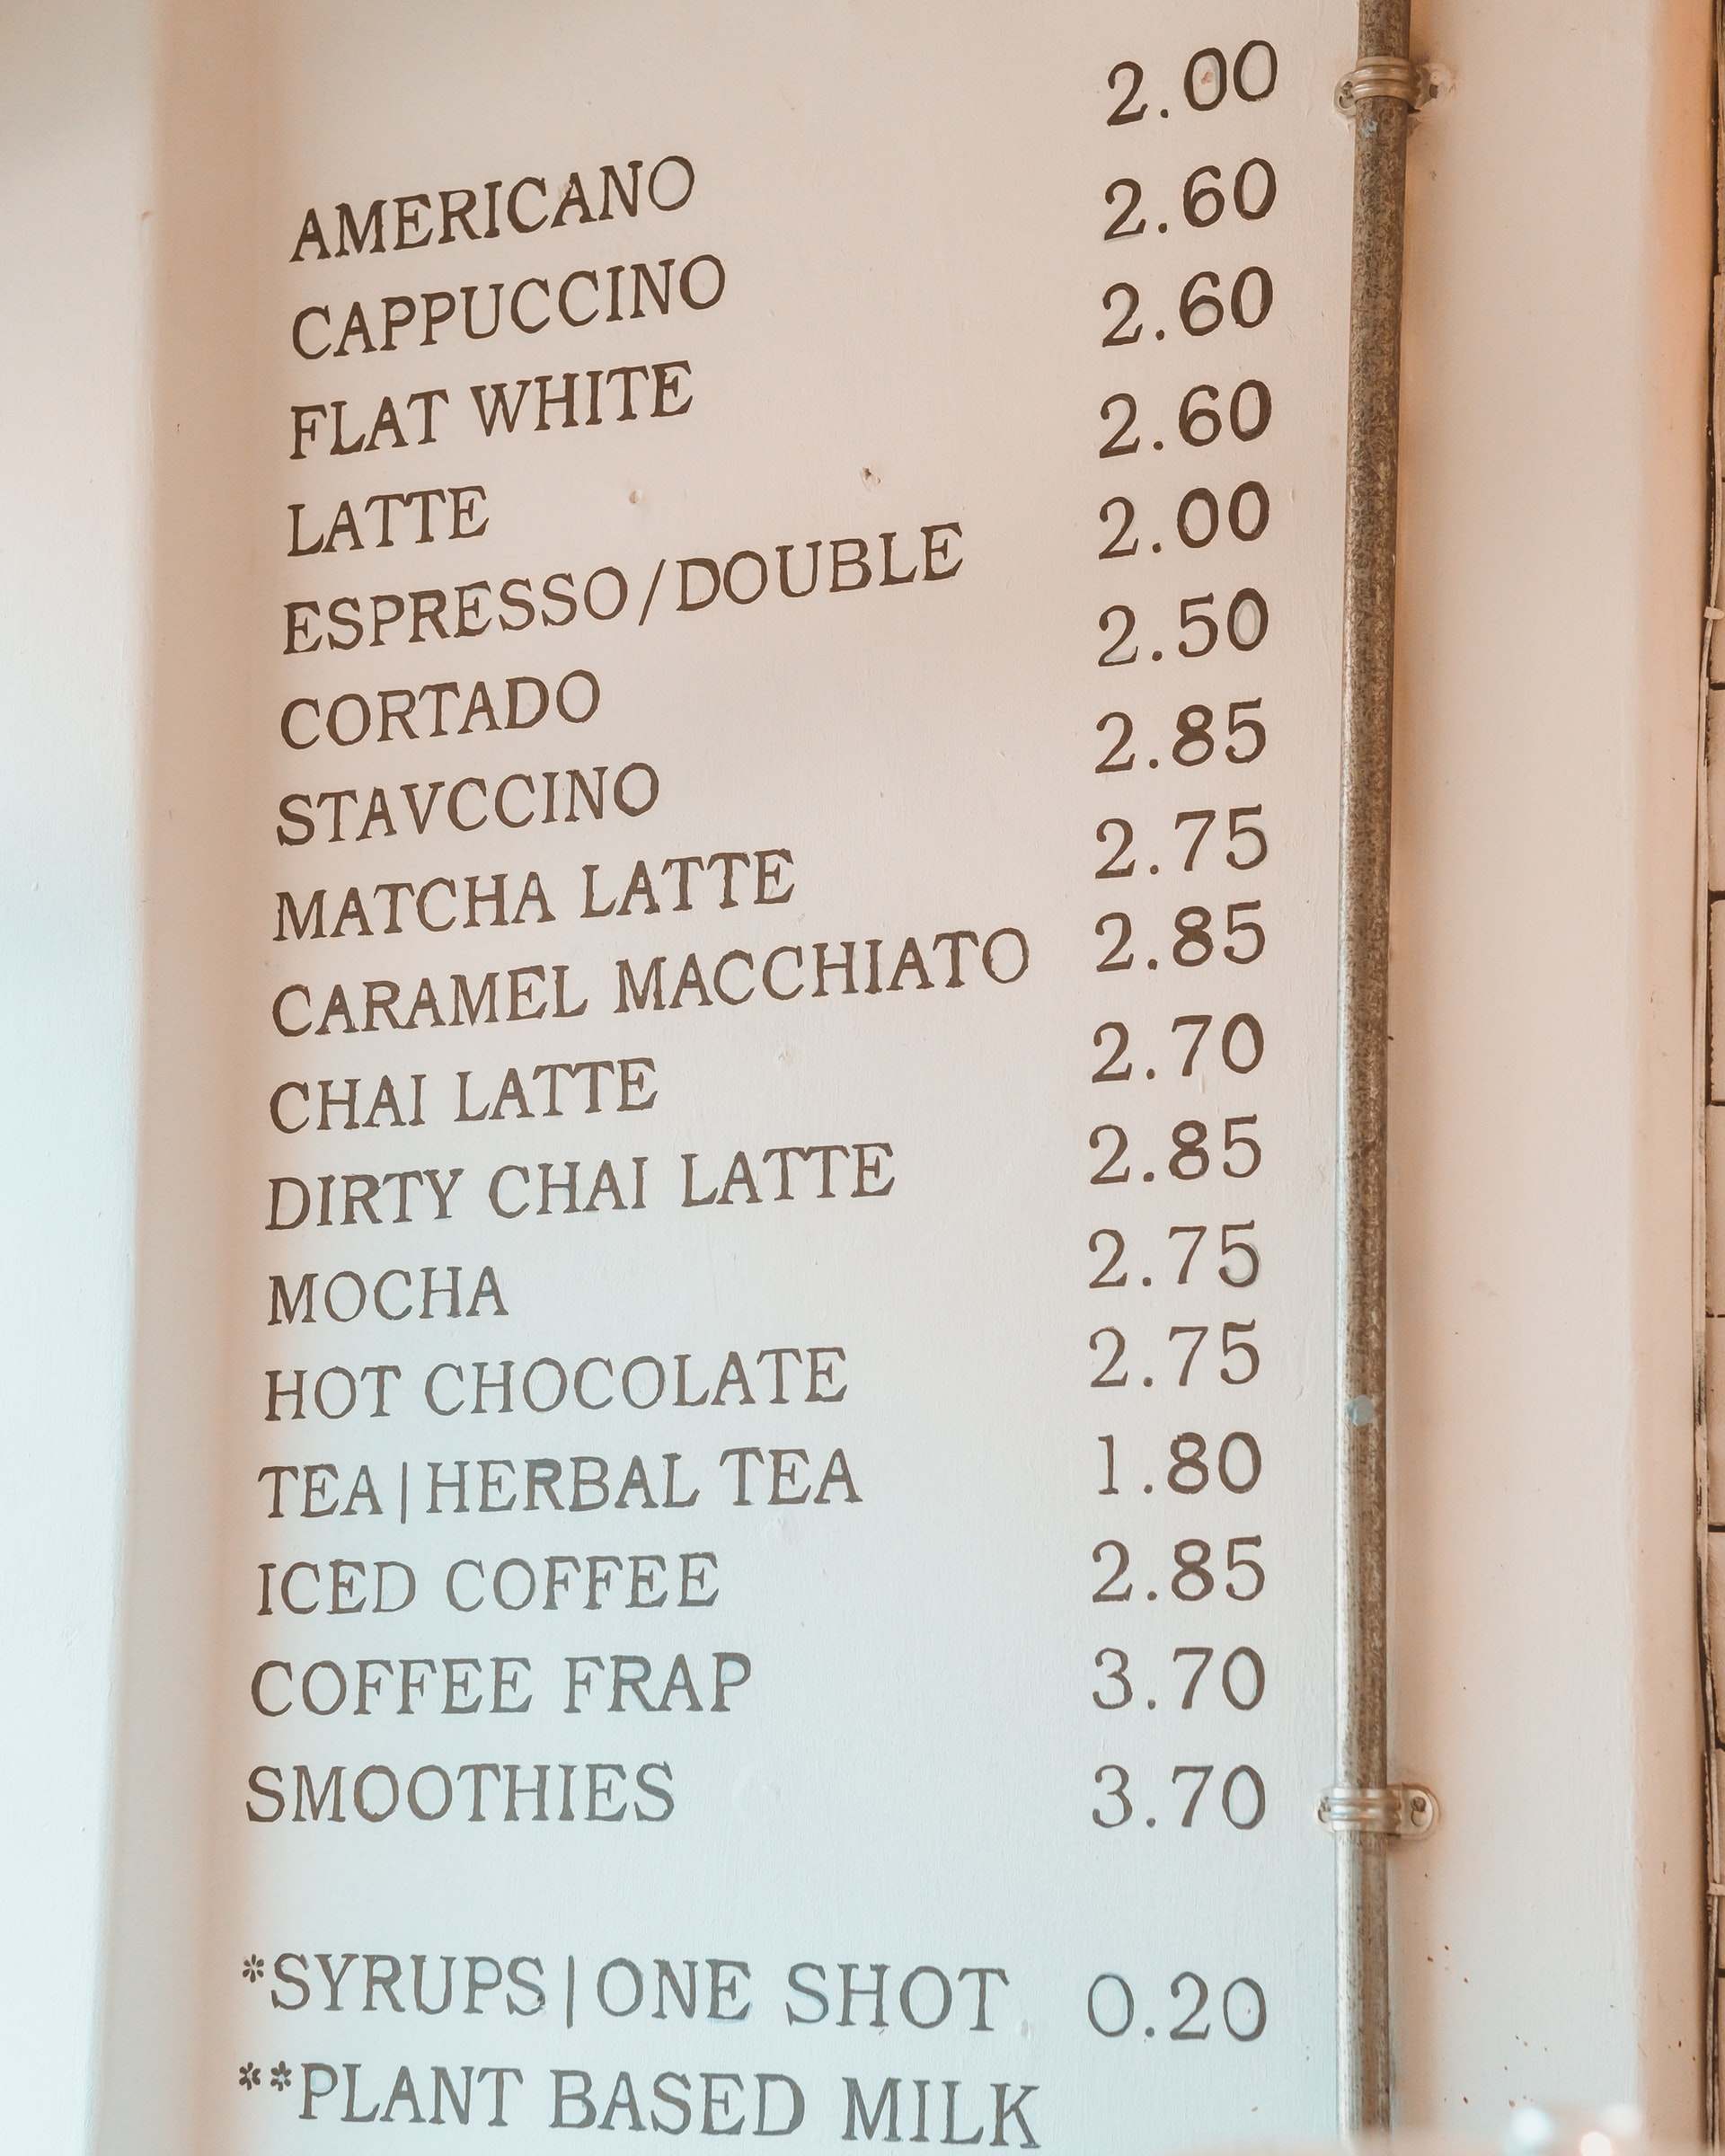 AMERICANO 2.00
CAPPUCCINO 2.60
FLAT WHITE 2.60
LATTE 2.60
ESPRESSO/DOUBLE 2.00
CORTADO 2.50
STAVCCINO 2.85
MATCHA LATTE 2.75
CARAMEL MACCHIATO 2.85
CHAI LATTE 2.70
DIRTY CHAI LATTE 2.85
MOCHA 2.75
HOT CHOCOLATE 2.75
TEA|HERBAL TEA 1.80
ICED COFFEE 2.85
COFFEE FRAP 3.70
SMOOTHIES 3.70
*SYRUPS|ONE SHOT 0.20
**PLANT BASED MILK